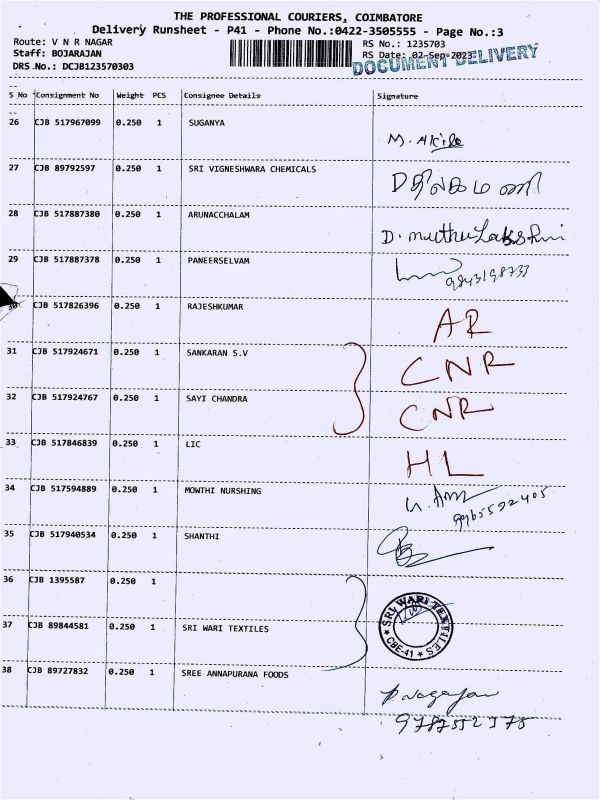 THE PROFESSIONAL COURIERS, COIMBATORE
Delivery Runsheet - P41 - Phone No.:0422-3505555 - Page No.:3
Route: V N R NAGAR RS No.: 1235703
Staff: BOJARAJAN RS Date: 02-Sep-2023
DRS No.: DCJB123570303 DOCUMENT DELIVERY
S No Consignment No Weight PCS Consignee Details Signature
26 CJB 517967099 0.250 1 SUGANYA
M. Akila
27 CJB 89792597 0.250 1 SRI VIGNESHWARA CHEMICALS
28 CJB 517887380 0.250 1 ARUNACCHALAM
D. muthuLakshmi
29 CJB 517887378 0.250 1 PANEERSELVAM
9843198733
30 CJB 517826396 0.250 1 RAJESHKUMAR
AR
31 CJB 517924671 0.250 1 SANKARAN S.V
CNR
32 CJB 517924767 0.250 1 SAYI CHANDRA
CNR
33 CJB 517846839 0.250 1 LIC
HL
34 CJB 517594889 0.250 1 MOWTHI NURSHING
9965592405
35 CJB 517940534 0.250 1 SHANTHI
36 CJB 1395587 0.250 1
37 CJB 89844581 0.250 1 SRI WARI TEXTILES
SRI WARI TEXTILES
CBE-41
38 CJB 89727832 0.250 1 SREE ANNAPURANA FOODS
P. Nagajan
9787552375